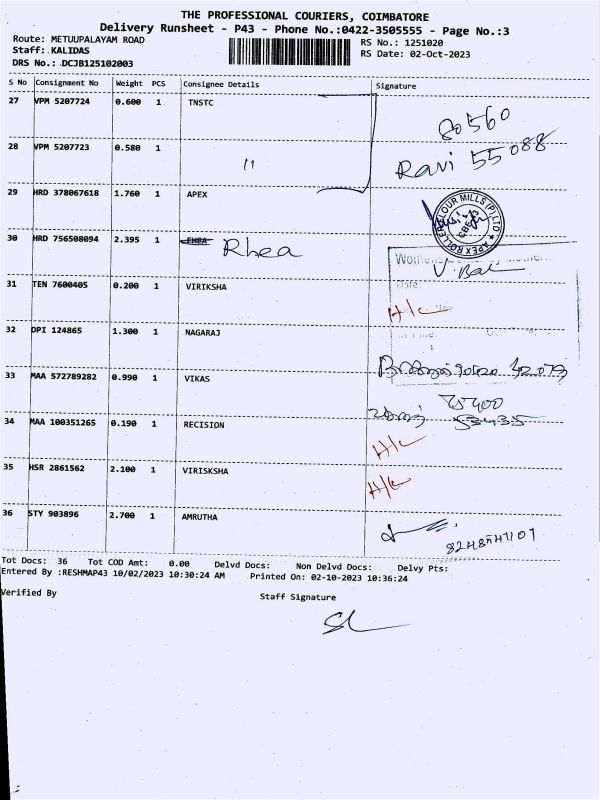 THE PROFESSIONAL COURIERS, COIMBATORE
Delivery Runsheet - P43 - Phone No.:0422-3505555 - Page No.:3
Route: METUUPALAYAM ROAD
RS No.: 1251020
Staff: KALIDAS
RS Date: 02-Oct-2023
DRS No.: DCJB125102003
S No Consignment No Weight PCS Consignee Details Signature
27 VPM 5207724 0.600 1 TNSTC
80560
28 VPM 5207723 0.580 1 11
Ravi 55088
29 HRD 378067618 1.760 1 APEX
30 HRD 756508094 2.395 1 Rhea
31 TEN 7600405 0.200 1 VIRIKSHA
H/c
32 DPI 124865 1.300 1 NAGARAJ
33 MAA 572789282 0.990 1 VIKAS
34 MAA 100351265 0.190 1 RECISION
H/c
35 HSR 2861562 2.100 1 VIRISKSHA
H/c
36 STY 903896 2.700 1 AMRUTHA
Tot Docs: 36 Tot COD Amt: 0.00 Delvd Docs: Non Delvd Docs: Delvy Pts:
Entered By :RESHMAP43 10/02/2023 10:30:24 AM Printed On: 02-10-2023 10:36:24
Verified By Staff Signature